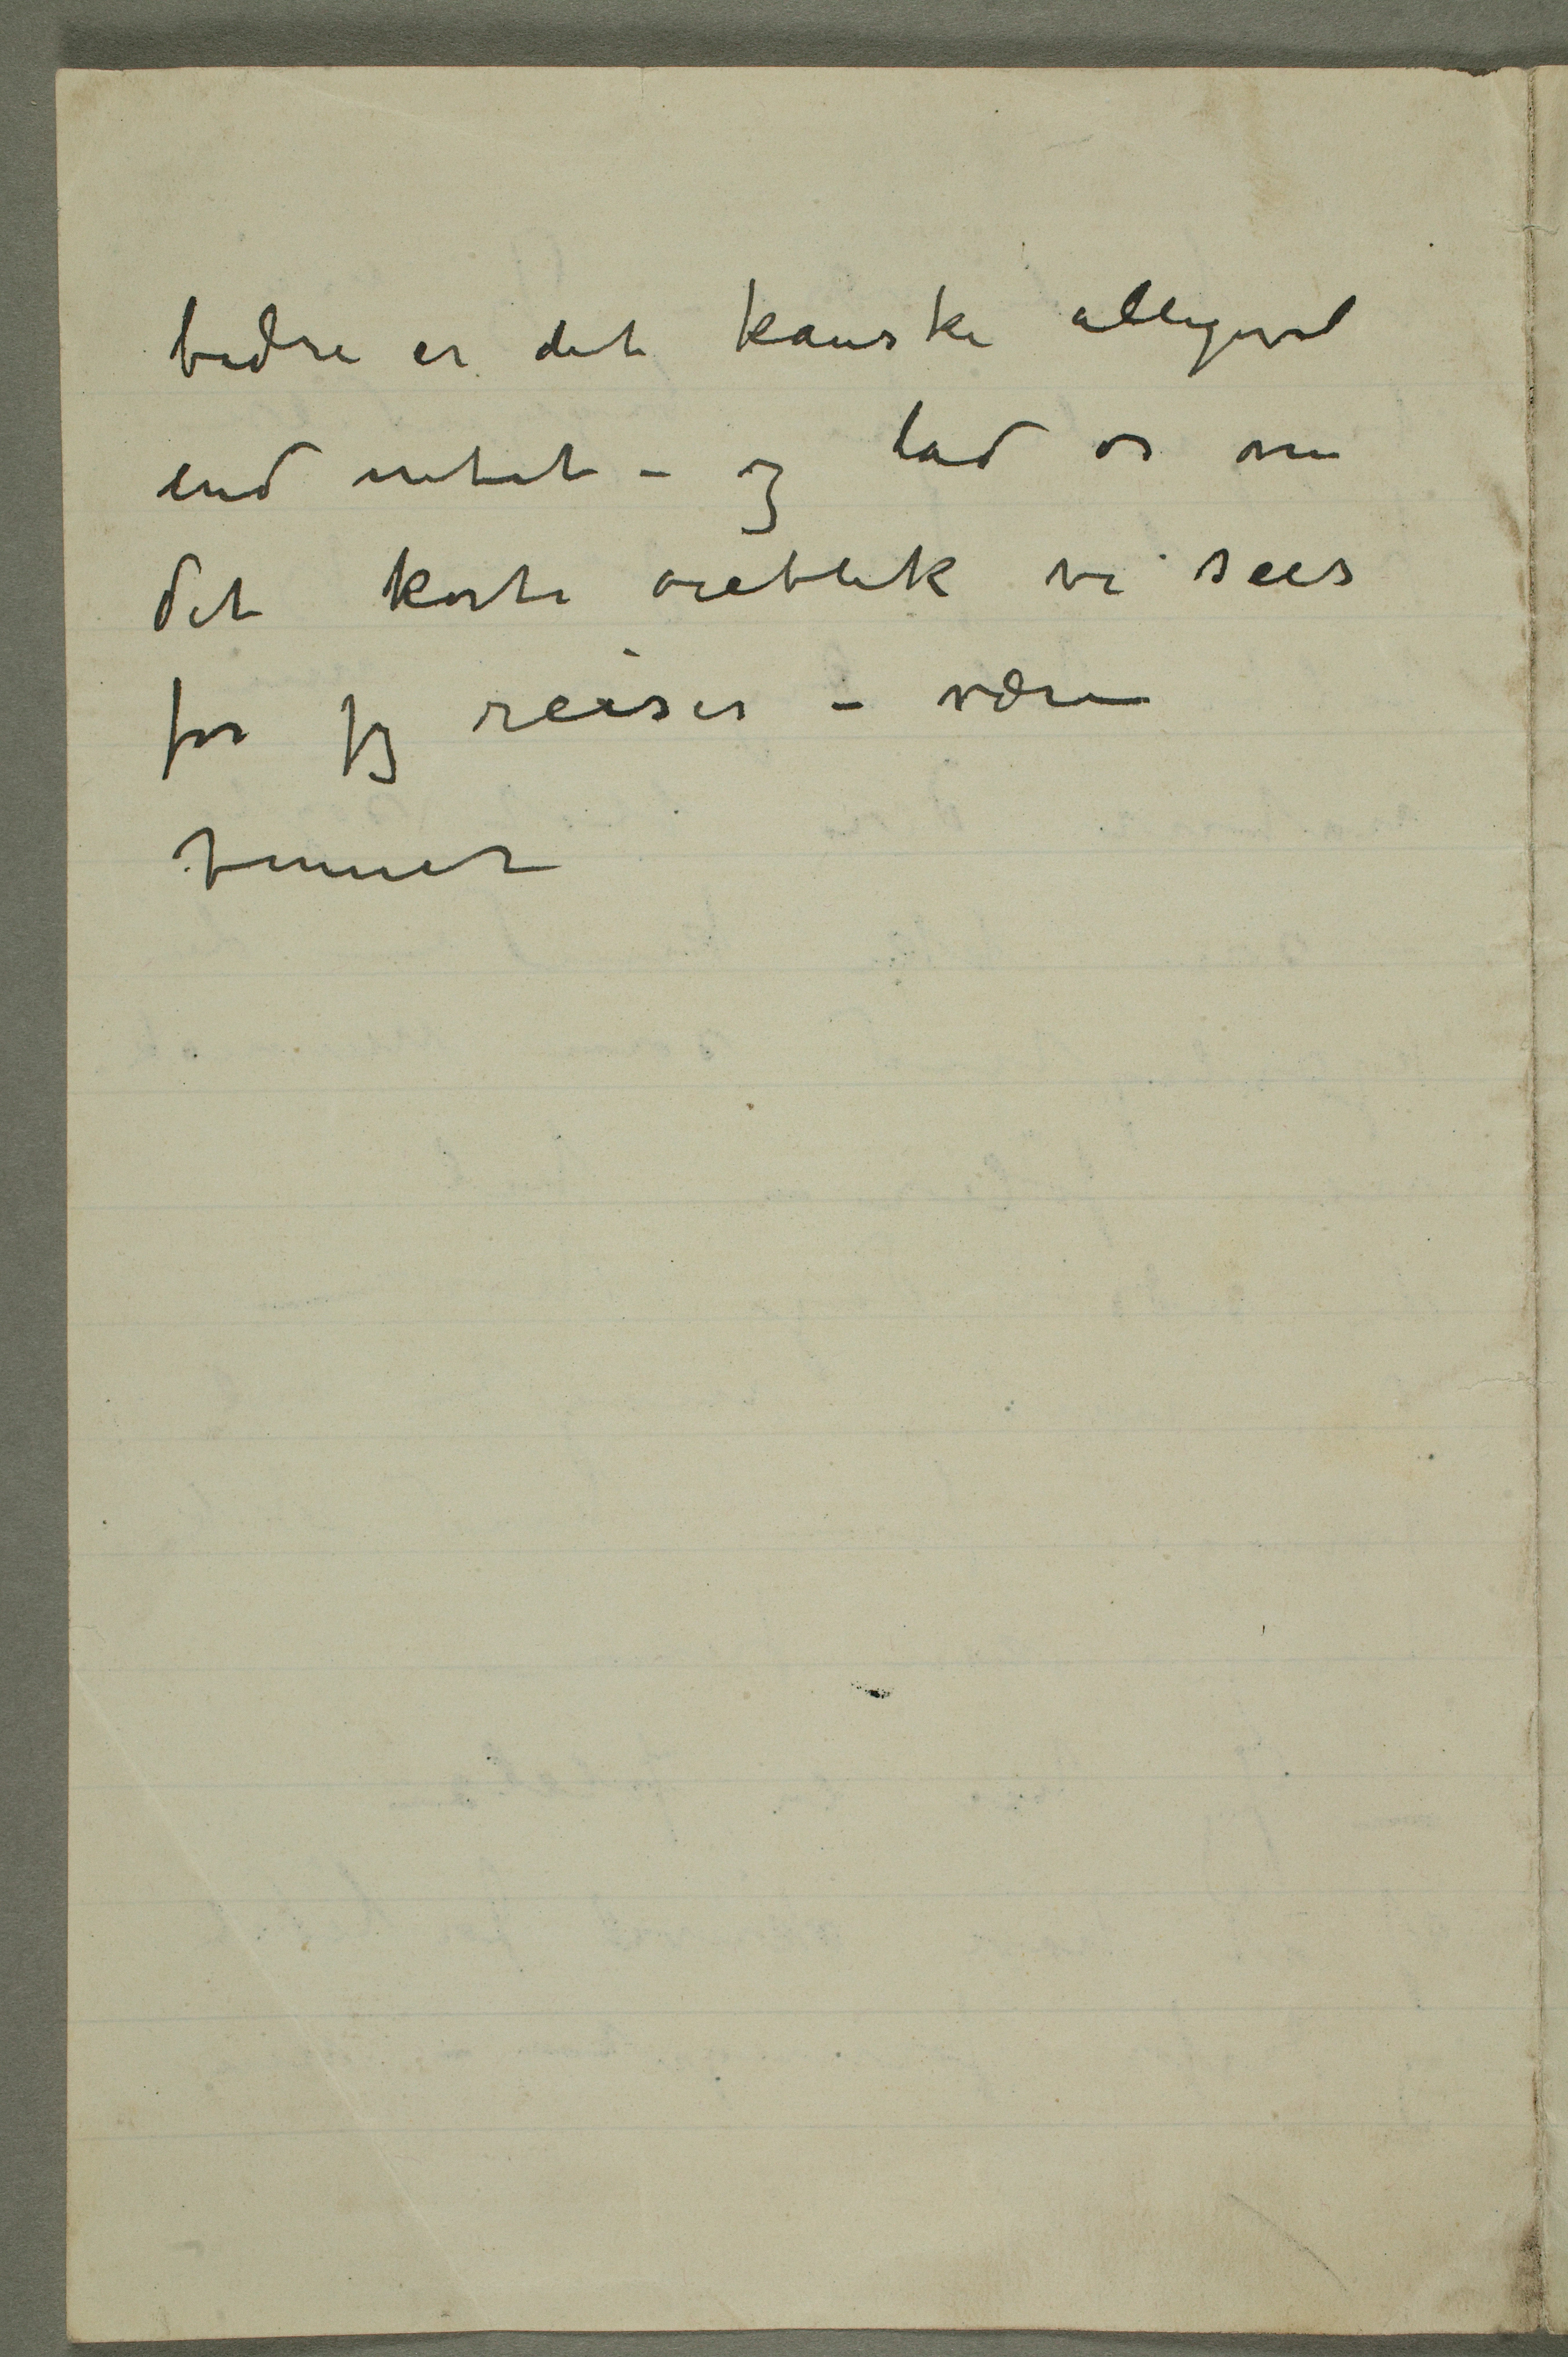 bedre er det kanske alligevel
end intet – og lad os nu
det korte øieblik vi sees
før jeg reiser – være
venner